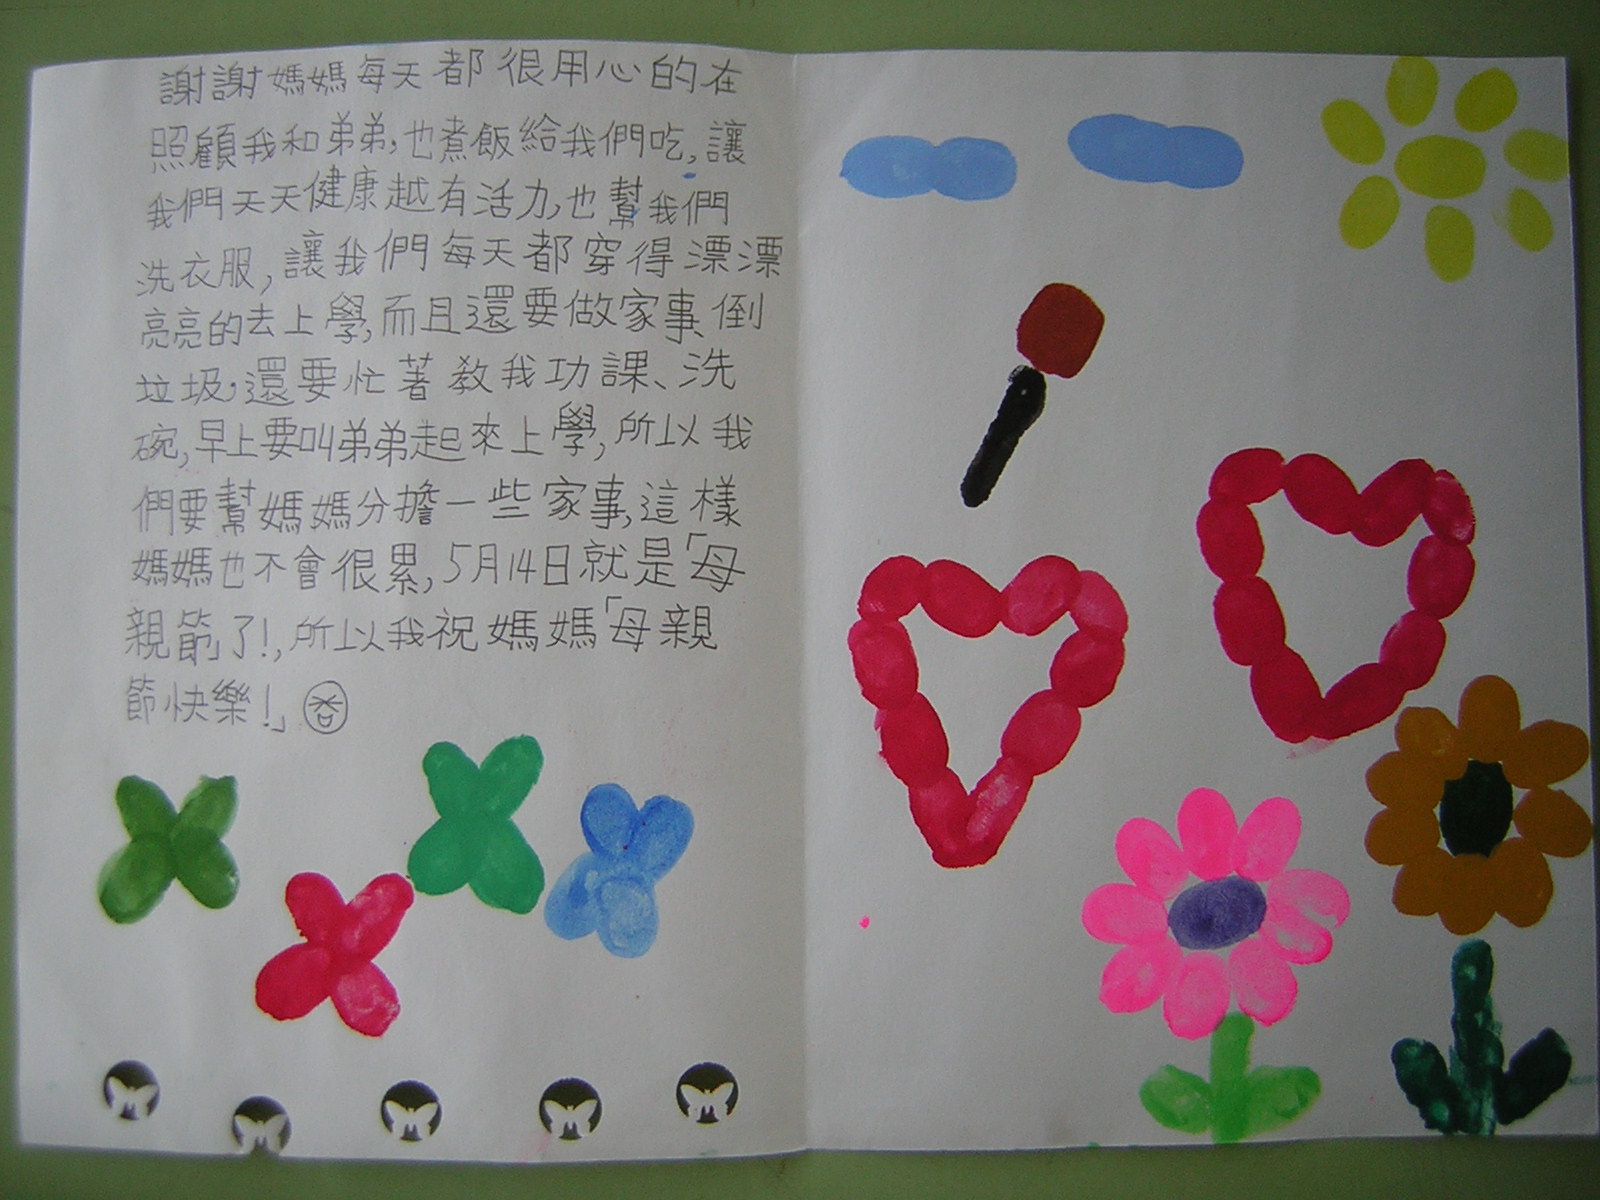 謝謝媽媽每天都很用心的在
照顧我和弟弟,也煮飯給我們吃,讓
我們天天健康越有活力,也幫我們
洗衣服,讓我們每天都穿得漂漂
亮亮的去上學,而且還要做家事、倒
垃圾,還要忙著教我功課、洗
碗,早上要叫弟弟起來上學,所以我
們要幫媽媽分擔一些家事,這樣
媽媽也不會很累,5月14日就是「母
親節」了!,所以我祝媽媽「母親
節快樂!」